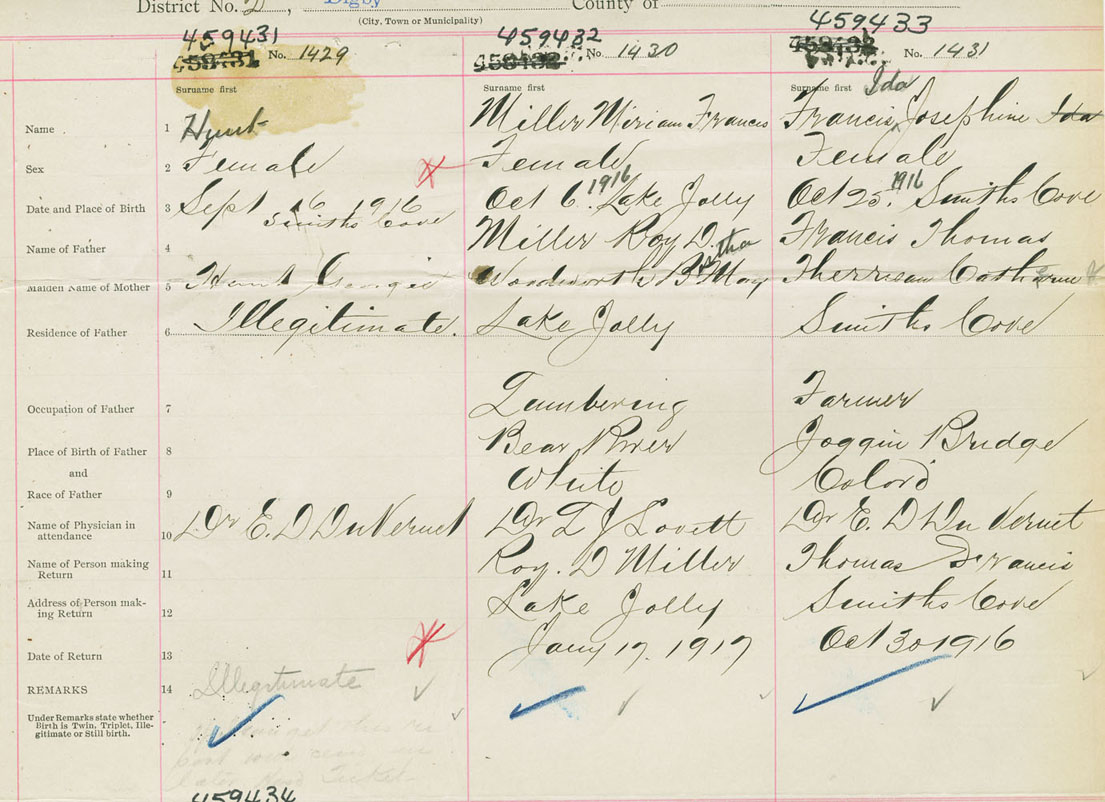 District No. 2, Digby County of
(City, Town or Municipality)
459431 459432 459433
No. 1429 No. 1430 No. 1431
Surname first Surname first Surname first Ida
Name 1 Hunt Miller Miriam Francis Francis, Josephine Ida
Sex 2 Female Female Female
Date and Place of Birth 3 Sept 16 1916 Smiths Cove Oct 6. 1916 Lake Jolly Oct 25. 1916 Smiths Cove
Name of Father 4 Miller Roy D. Francis Thomas
Maiden Name of Mother 5 Hunt Georgie Woodworth Bertha May Therrieau
Residence of Father 6 Illegitimate. Lake Jolly Smiths Cove
Occupation of Father 7 Lumbering Farmer
Place of Birth of Father 8 Bear River Joggin Bridge
and
Race of Father 9 White Colord
Name of Physician in
attendance 10 Dr E. D DuVernet Dr L J Lovett Dr E. D DuVernet
Name of Person making
Return 11 Roy. D Miller Thomas Francis
Address of Person mak-
ing Return 12 Lake Jolly Smiths Cove
Date of Return 13 Jany 17. 1917 Oct 30 1916
REMARKS 14 Illegitimate
Under Remarks state whether
Birth is Twin, Triplet, Ille-
gitimate or Still birth.
459434